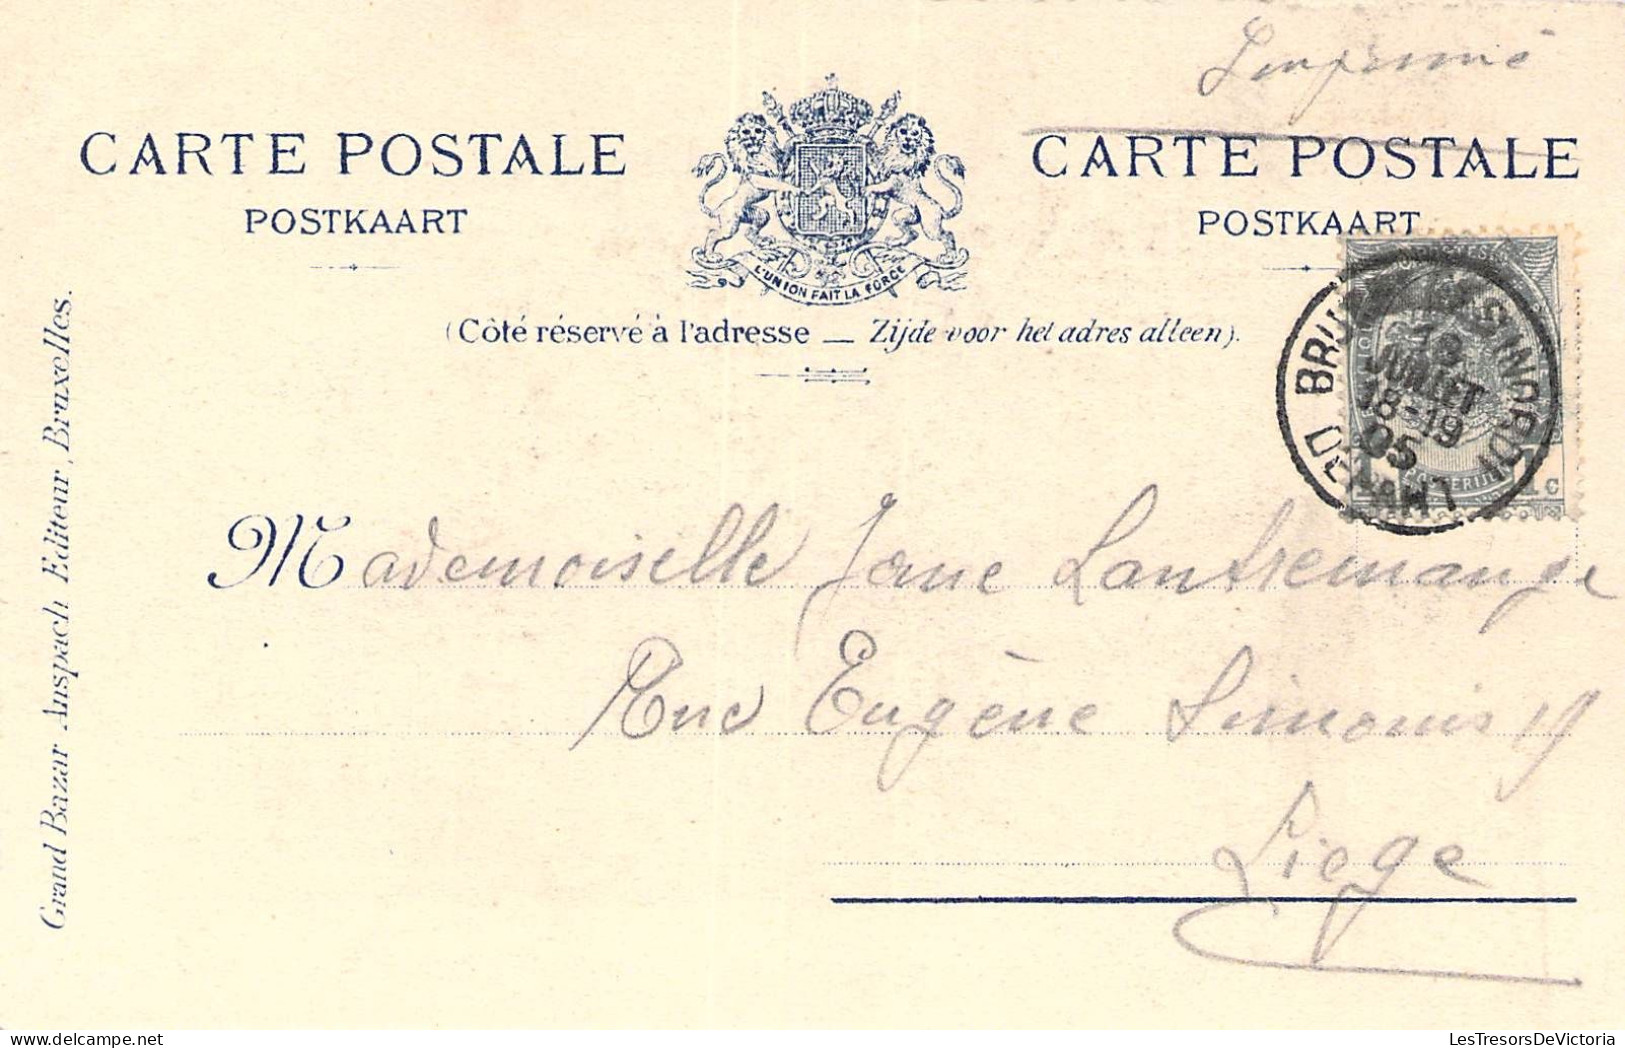 Imprimé
CARTE POSTALE
POSTKAART
L'UNION FAIT LA FORCE
CARTE POSTALE
POSTKAART
(Côté réservé à l'adresse — Zijde voor het adres alleen).
JUILLET
18-19
05
DÉPART
1c
Grand Bazar Anspach Editeur, Bruxelles.
Mademoiselle Jane Lantremange
Rue Eugène Simonis 19
Liege
LesTresorsDeVictoria